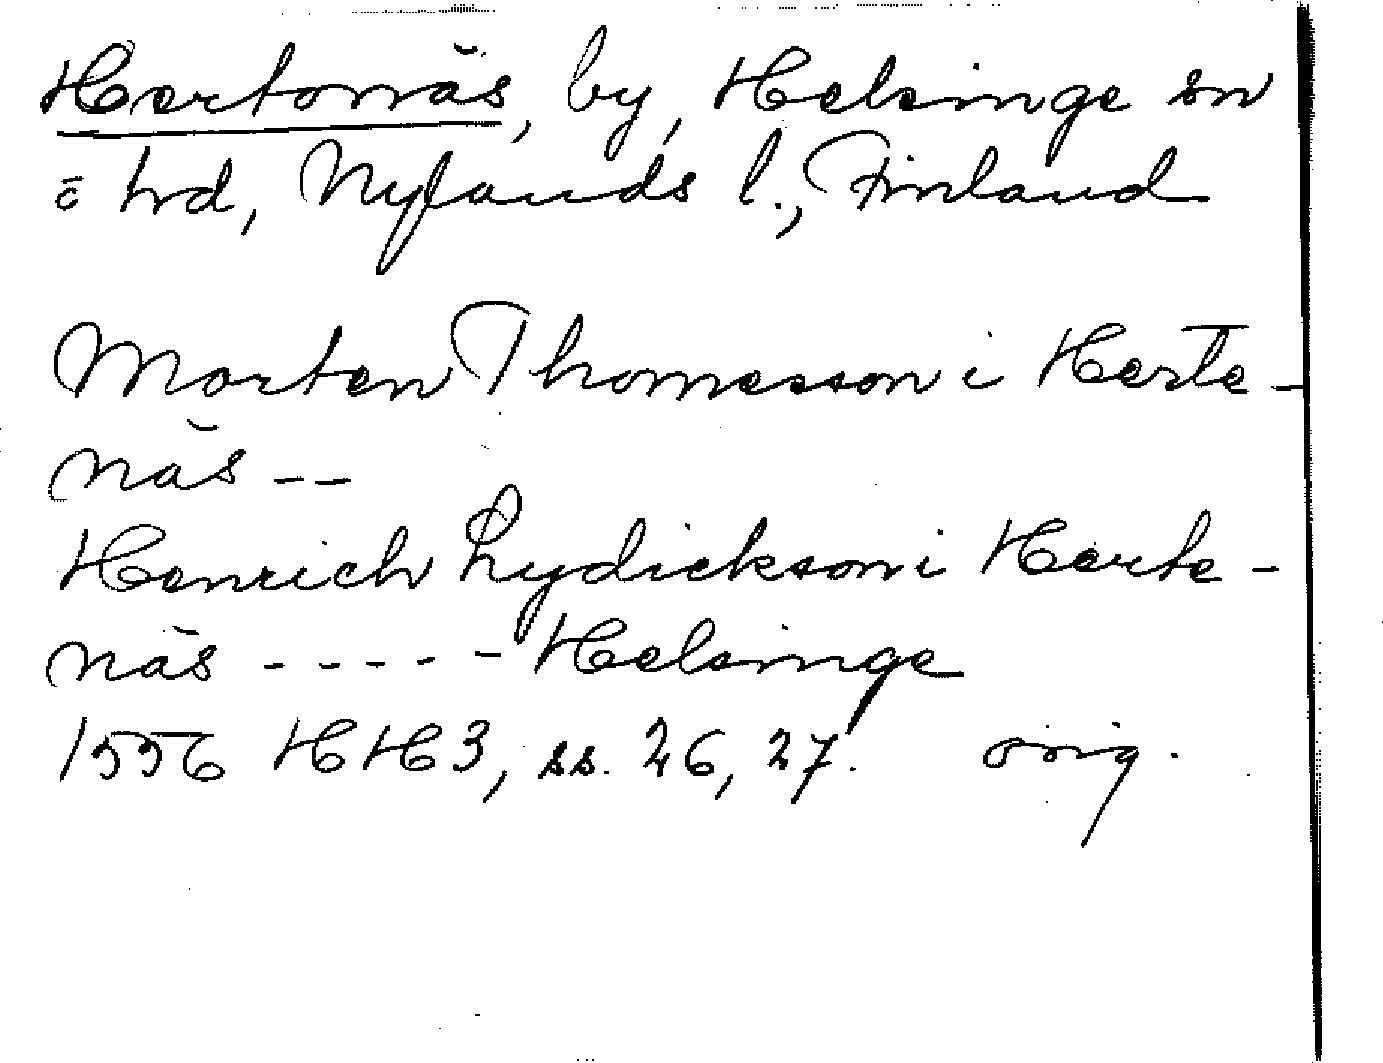 Hertonäs, by, Helsinge sn
o hrd, Nylands l., Finland
Morten Thomesson i Herte-
näs --
Henrich Lydickson i Herte-
näs ----- Helsinge
1556 HH3, ss. 26, 27. orig.